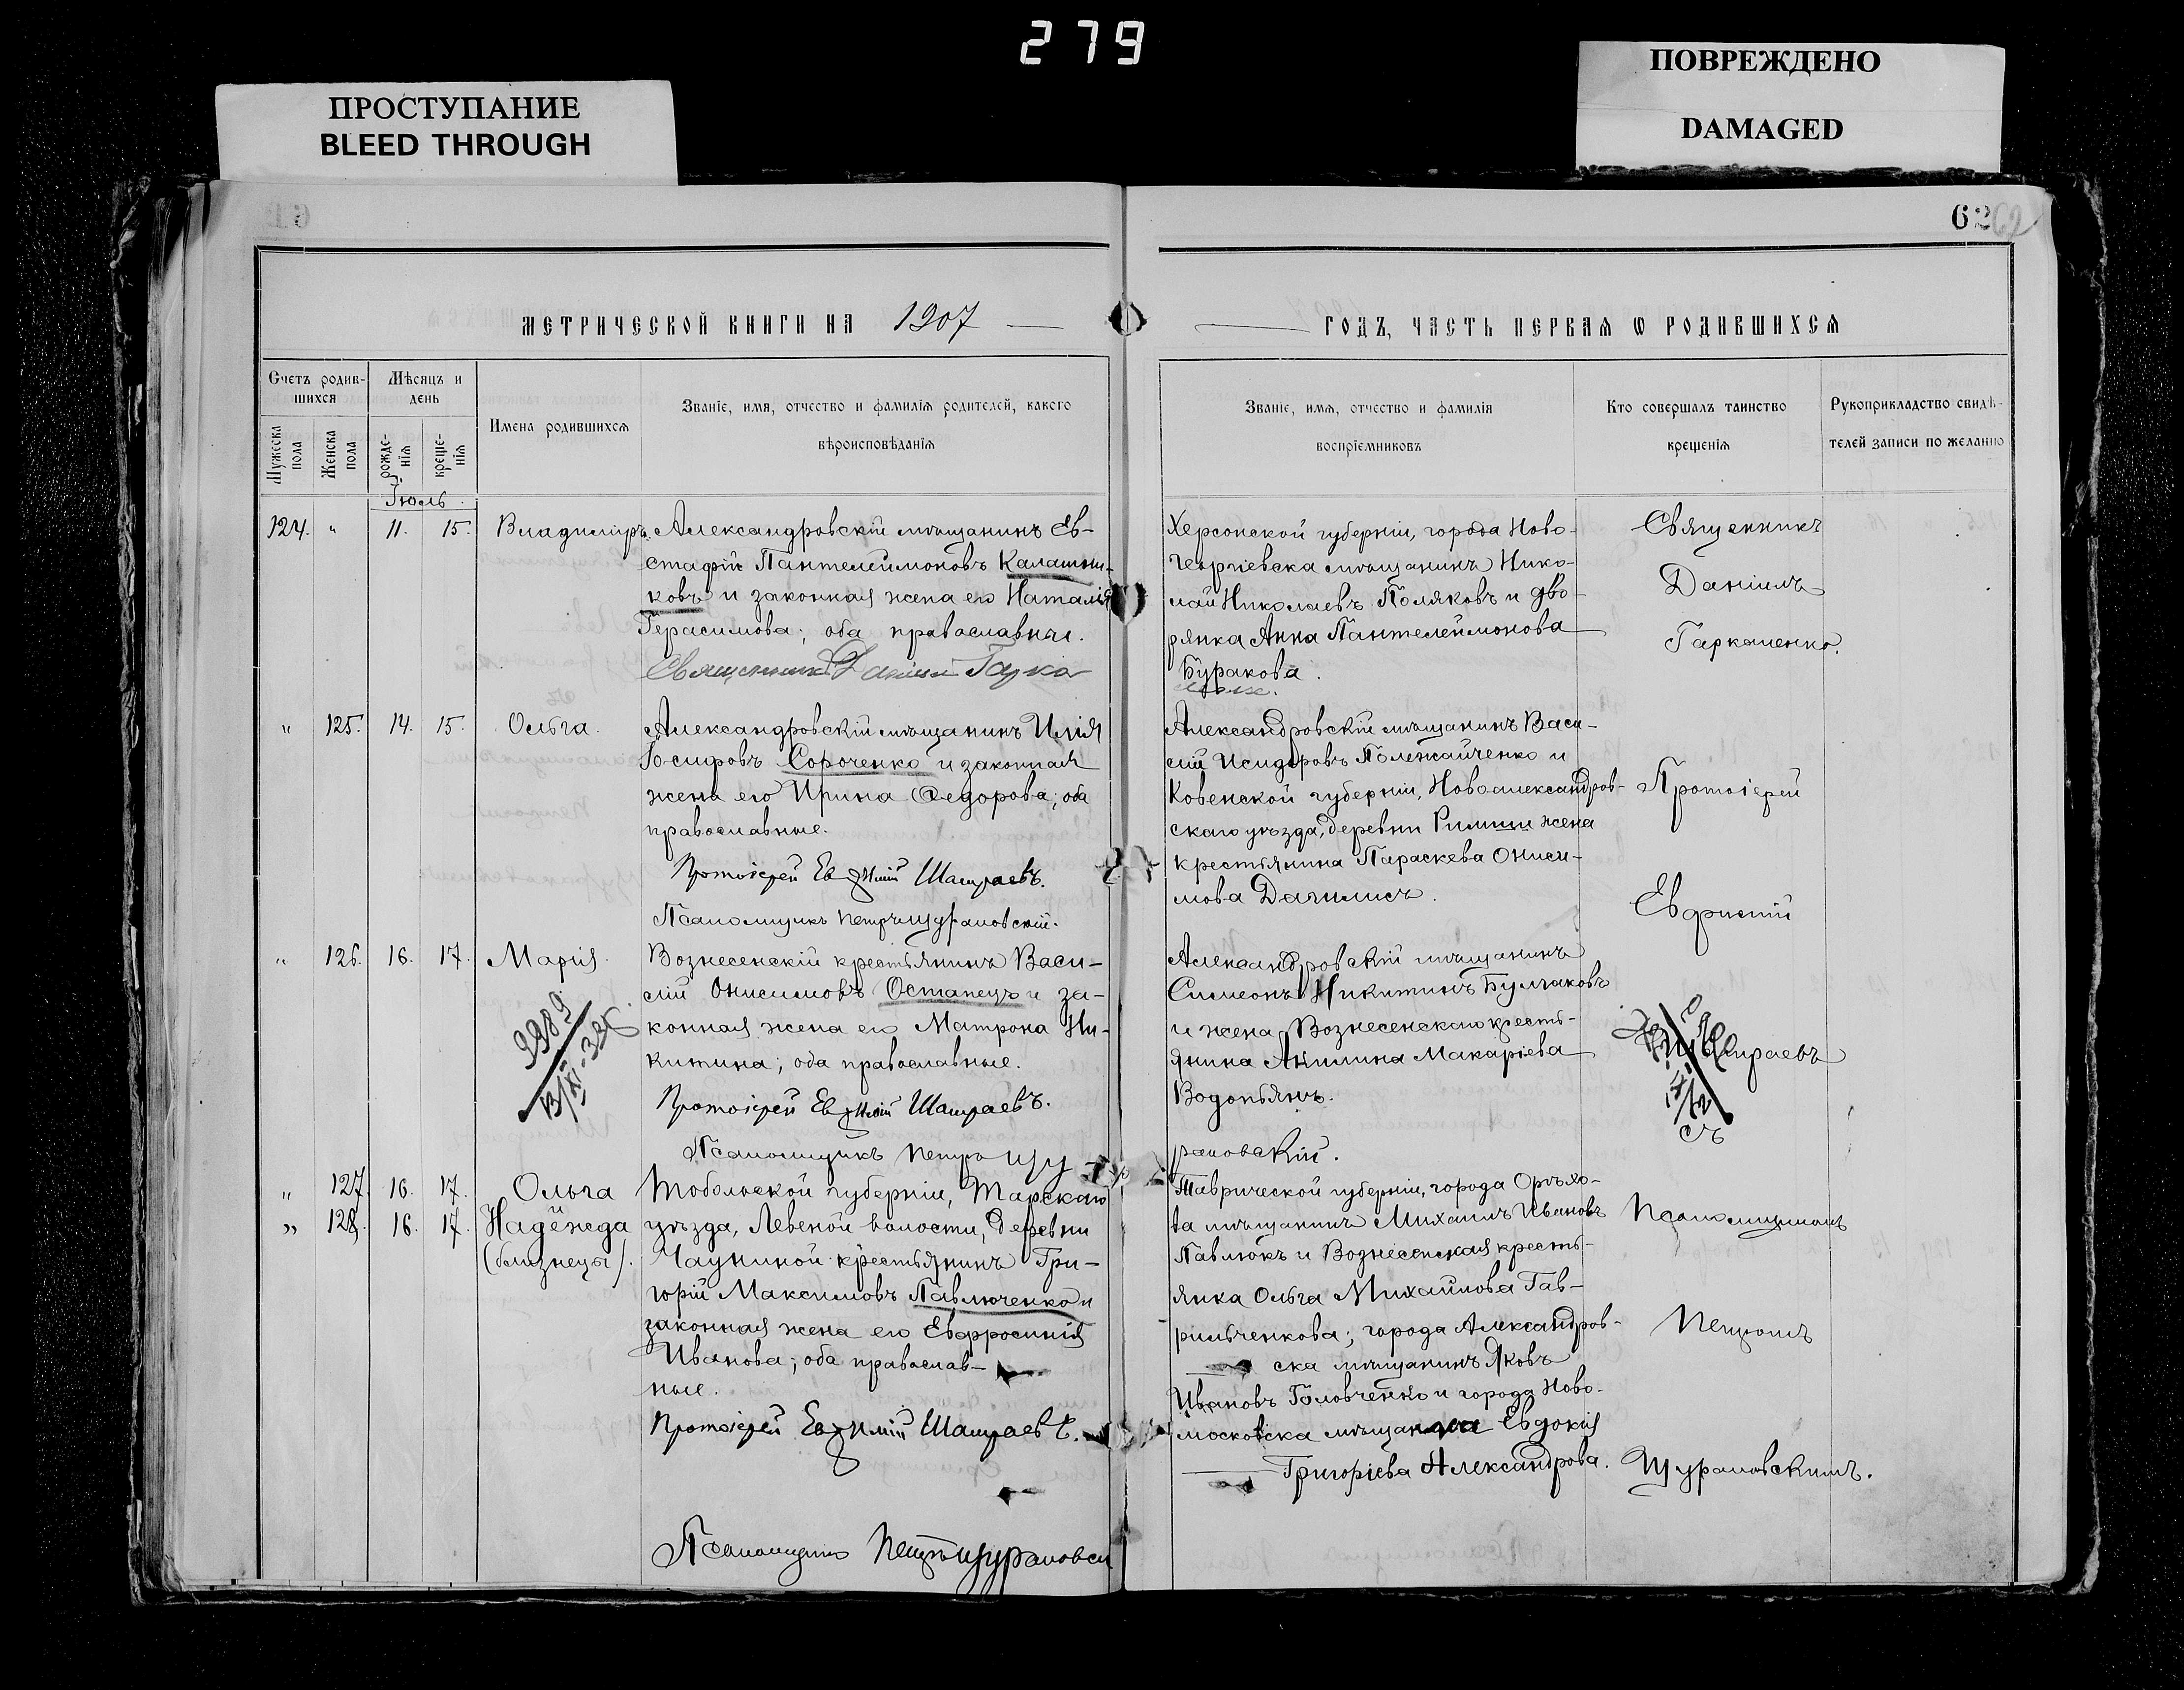 279
ПРОСТУПАНИЕ
BLEED THROUGH
ПОВРЕЖДЕНО
DAMAGED
62 62
МЕТРИЧЕСКОЙ КНИГИ НА 1907
ГОДЪ, ЧАСТЬ ПЕРВАЯ Ѡ РОДИВШИХСЯ
Счетъ родив-
шихся
Мѣсяцъ и
день
Мужеска
пола
Женска
пола
рожде-
нія
креще-
нія
Имена родившихся
Званіе, имя, отчество и фамилія родителей, какого
вѣроисповѣданія
Званіе, имя, отчество и фамилія
воспріемниковъ
Кто совершалъ таинство
крещенія
Рукоприкладство свидѣ-
телей записи по желанію
Іюль
124. " 11. 15. Владиміръ.
Александровскій мѣщанинъ Ев-
стафій Пантелеимоновъ Калашни-
ковъ и законная жена его Наталія
Герасимова; оба православные.
Священникъ Даніилъ Гарка
Херсонской губерніи, города Ново-
георгіевска мѣщанинъ Нико-
лай Николаевъ Поляковъ и дво-
рянка Анна Пантелеимонова
Буракова.
Священникъ
Даніилъ
Гаркаменко.
" 125. 14. 15. Ольга.
Александровскій мѣщанинъ Илія
Іосифовъ Сороченко и законная
жена его Ирина Ѳедорова; оба
православные.
Протоіерей Евѳимій Шамраевъ.
Псаломщикъ Петръ Щурановскій.
Александровскій мѣщанинъ Васи-
лій Исидоровъ Полежайченко и
Ковенской губерніи, Новоалександров-
скаго уѣзда, деревни Римши жена
крестьянина Параскева Ониси-
мова Данилисъ.
Протоіерей
Евфимій
" 126. 16. 17. Марія.
Вознесенскій крестьянинъ Васи-
лій Онисимовъ Останецъ и за-
конная жена его Матрона Ни-
китина; оба православные.
Протоіерей Евѳимій Шамраевъ.
Псаломщикъ Петръ Щу
рановскій.
Александровскій мѣщанинъ
Симеонъ Никитинъ Булгаковъ
и жена Вознесенскаго кресть-
янина Акилина Макаріева
Водопьянъ.
Шамраевъ
съ
" 127. 16. 17. Ольга
" 128. 16. 17. Надежда
(близнецы).
Тобольской губерніи, Тарскаго
уѣзда, волости, деревни
крестьянинъ Гри-
горій Максимовъ Павлюченко и
законная жена его Евфросинія
Иванова; оба православ-
ные.
Протоіерей Евѳимій Шамраевъ.
Псаломщикъ Петръ Щурановск
Таврической губерніи, города Орѣхо-
ва мѣщанинъ Михаилъ Ивановъ
Павлюкъ и Вознесенская кресть-
янка Ольга Михайлова Гав-
рильченкова; города Александров-
ска мѣщанинъ Яковъ
Ивановъ Головченко и города Ново-
московска мѣщанка Евдокія
Григоріева Александрова.
Псаломщикомъ
Петромъ
Щурановскимъ.